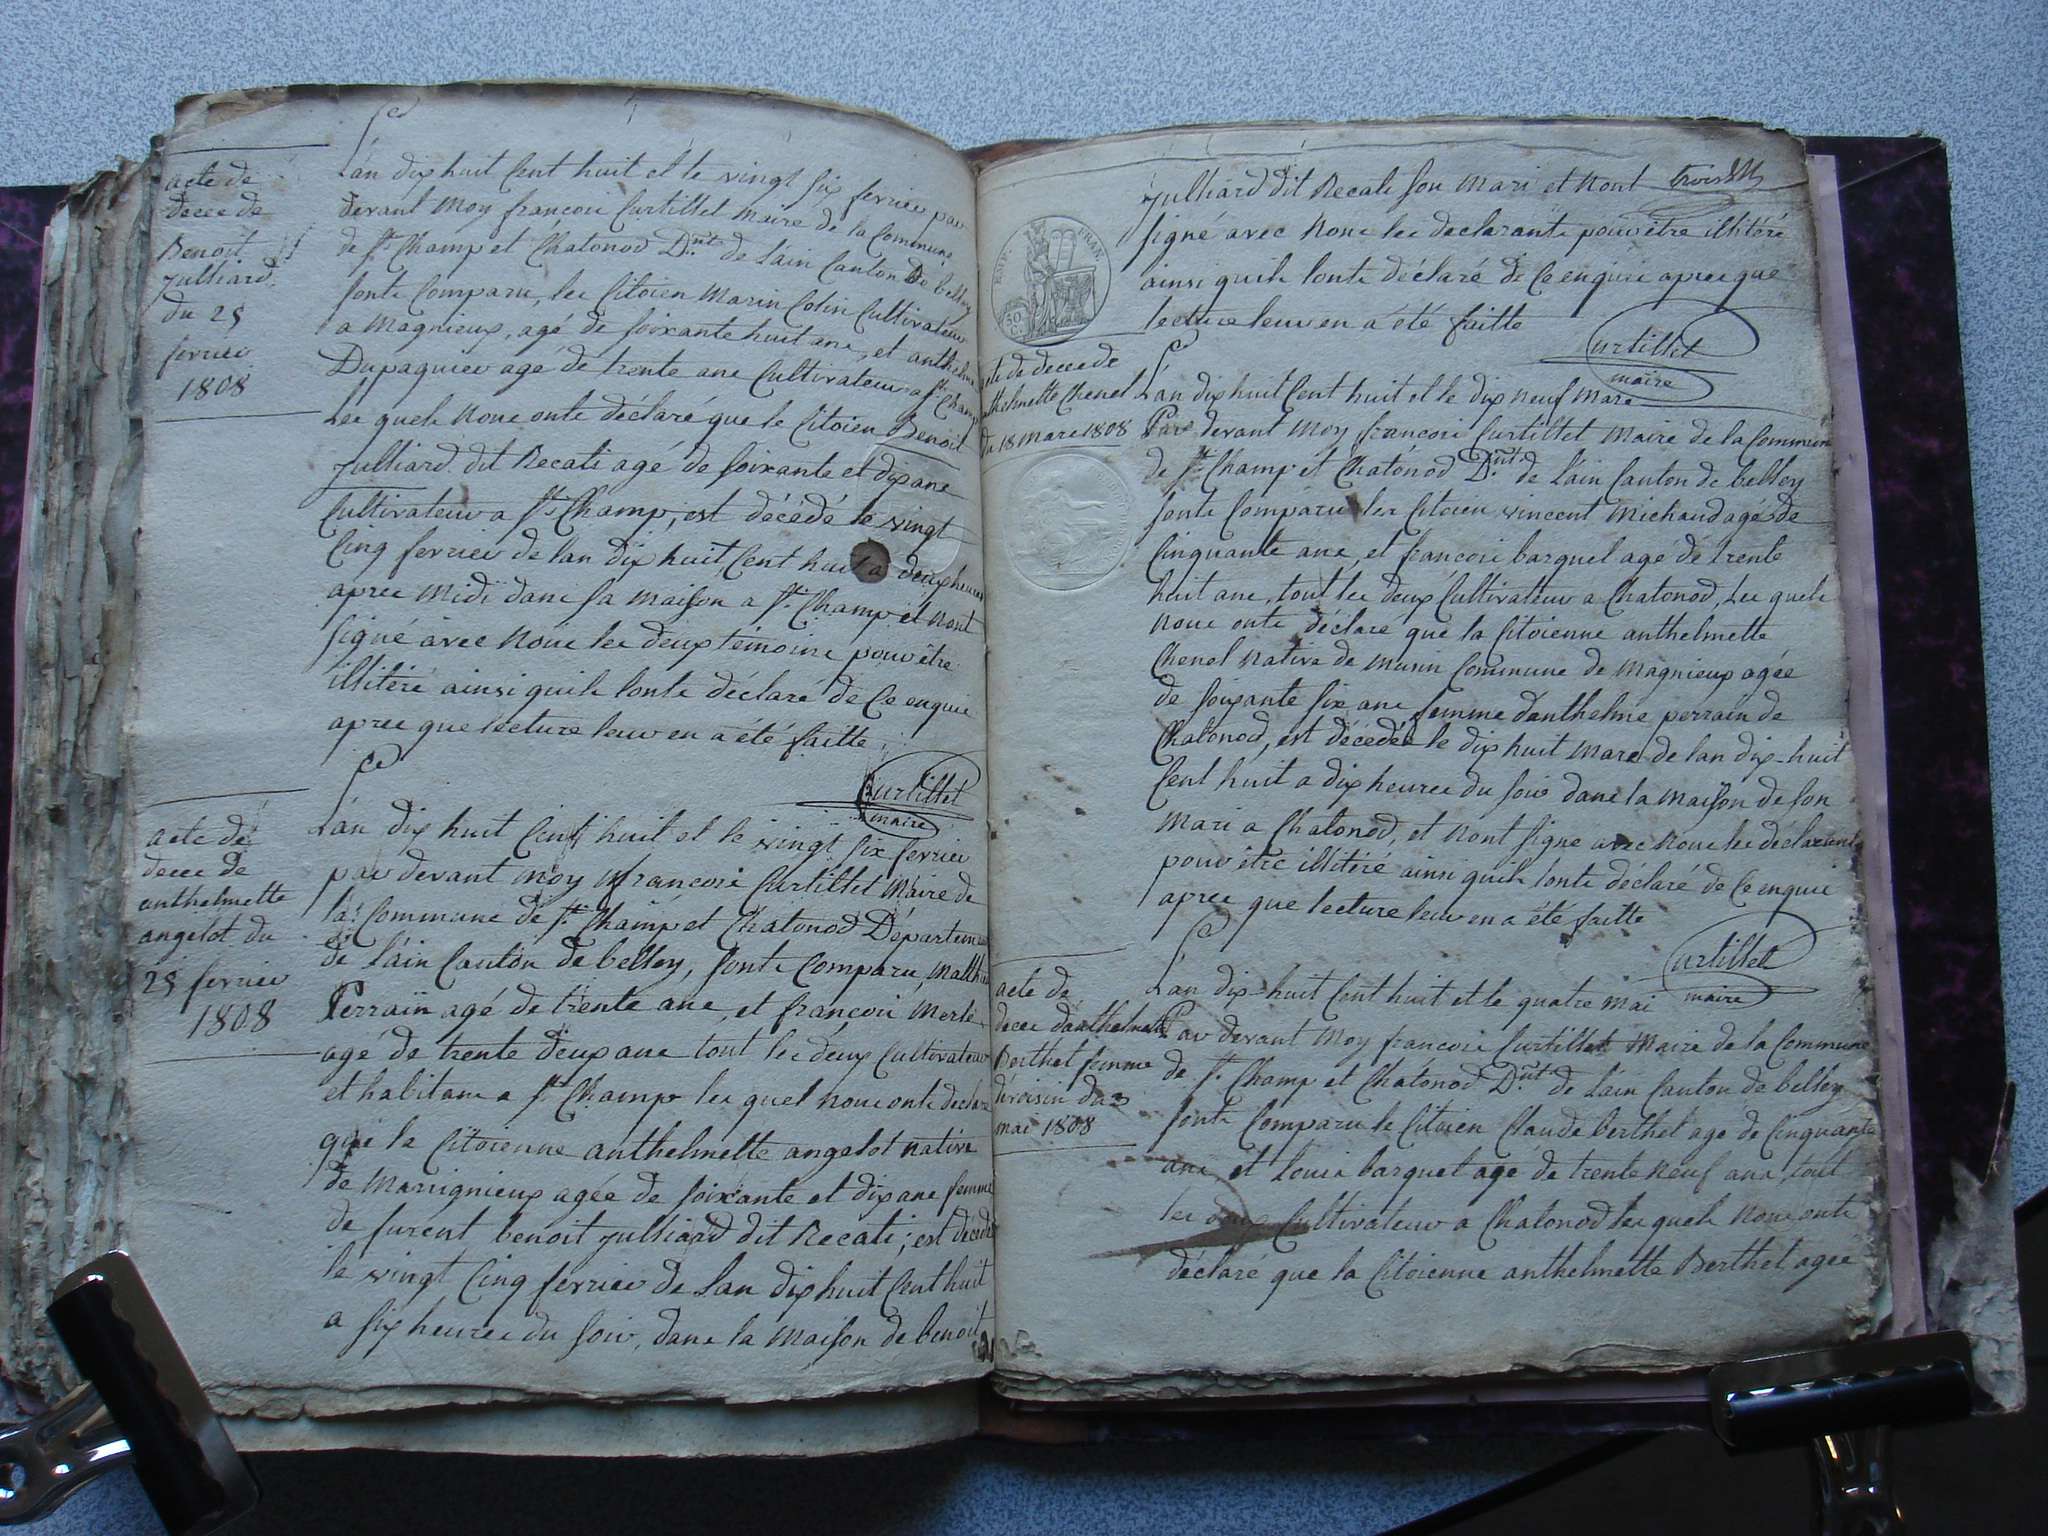 acte de
decee de
Benoit
Julliard
du 25
fevrier
1808
L'an dix huit Cent huit et le vingt six fevrier par
devant moy francois Curtillet maire de la Commune
de St Champ et Chatonod D.nt de l'ain Canton de belley
sonts Comparu, les Citoien marin Colin Cultivateur
a magnieux, agé de soixante huit ans, et anthelme
Dupaquier agé de trente ans Cultivateur a St Champ
Les quels nous onts déclaré que le Citoien Benoit
Julliard dit Recati agé de soixante et dix ans
Cultivateur a St Champ, est décédé le vingt
Cinq fevrier de lan dix huit Cent huit a deux heures
apres midi dans sa maison a St Champ et n'ont
signé avec nous les deux témoins pour être
illitéré ainsi quils l'onts déclaré de Ce enquis
apres que lecture leur en a été faitte
Curtillet
maire
acte de
decee de
anthelmette
angelot du
25 fevrier
1808
L'an dix huit Cent huit et le vingt six fevrier
par devant moy francois Curtillet maire de
la Commune de St Champ et Chatonod Département
de l'ain Canton de belley, sonts Comparu, Matthieu
Perrain agé de trente ans, et francois Merle
agé de trente deux ans tout les deux Cultivateur
et habitans a St Champ les quel nous onts déclaré
que la Citoienne anthelmette angelot native
de Marignieux agée de soixante et dix ans femme
de furent benoit Julliard dit Recati; est décédé
le vingt Cinq fevrier de lan dix huit Cent huit
a six heures du soir, dans la maison de benoit
Julliard dit Recati son mari et nont
signé avec nous les declarants pour être illitéré
ainsi quils lonts déclaré de Ce enquis apres que
lecture leur en a été faitte
Curtillet
maire
EMP. FRAN.
50 C.
acte de decee de
anthelmette Chenel
du 18 mars 1808
L'an dix huit Cent huit et le dix neuf mars
Pare devant moy francois Curtillet maire de la Commune
de St Champ et Chatonod D.nt de l'ain Canton de belley
sonts Comparu les Citoien vincent michaud agé de
Cinquante ans, et francois barquet agé de trente
huit ans, tout les deux Cultivateur a Chatonod, Les quels
nous onts déclaré que la Citoienne anthelmette
Chenel native de musin Commune de magnieux agée
de soixante six ans femme d'anthelme perrain de
Chatonod, est décédée le dix huit mars de lan dix-huit
Cent huit a dix heures du soir dans la maison de son
mari a Chatonod, et nont signé avec nous les déclarents
pour être illitéré ainsi quils lonts déclaré de Ce enquis
apres que lecture leur en a été faitte
Curtillet
maire
acte de
decee danthelmette
Berthet femme
du 3
mai 1808
L'an dix-huit Cent huit et le quatre mai
Par devant moy francois Curtillet Maire de la Commune
de St Champ et Chatonod D.nt de l'ain Canton de belley
sonts Comparu le Citoien Claude berthet agé de Cinquante
ans et Louis barquet agé de trente neuf ans, tout
les deux Cultivateur a Chatonod les quels nous onts
déclaré que la Citoienne anthelmette Berthet agée